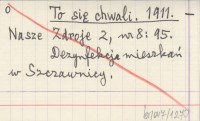 To się chwali. 1911. —
Nasze Zdroje 2, nr 8: 95.
Dezynfekcja mieszkań
w Szczawnicy.